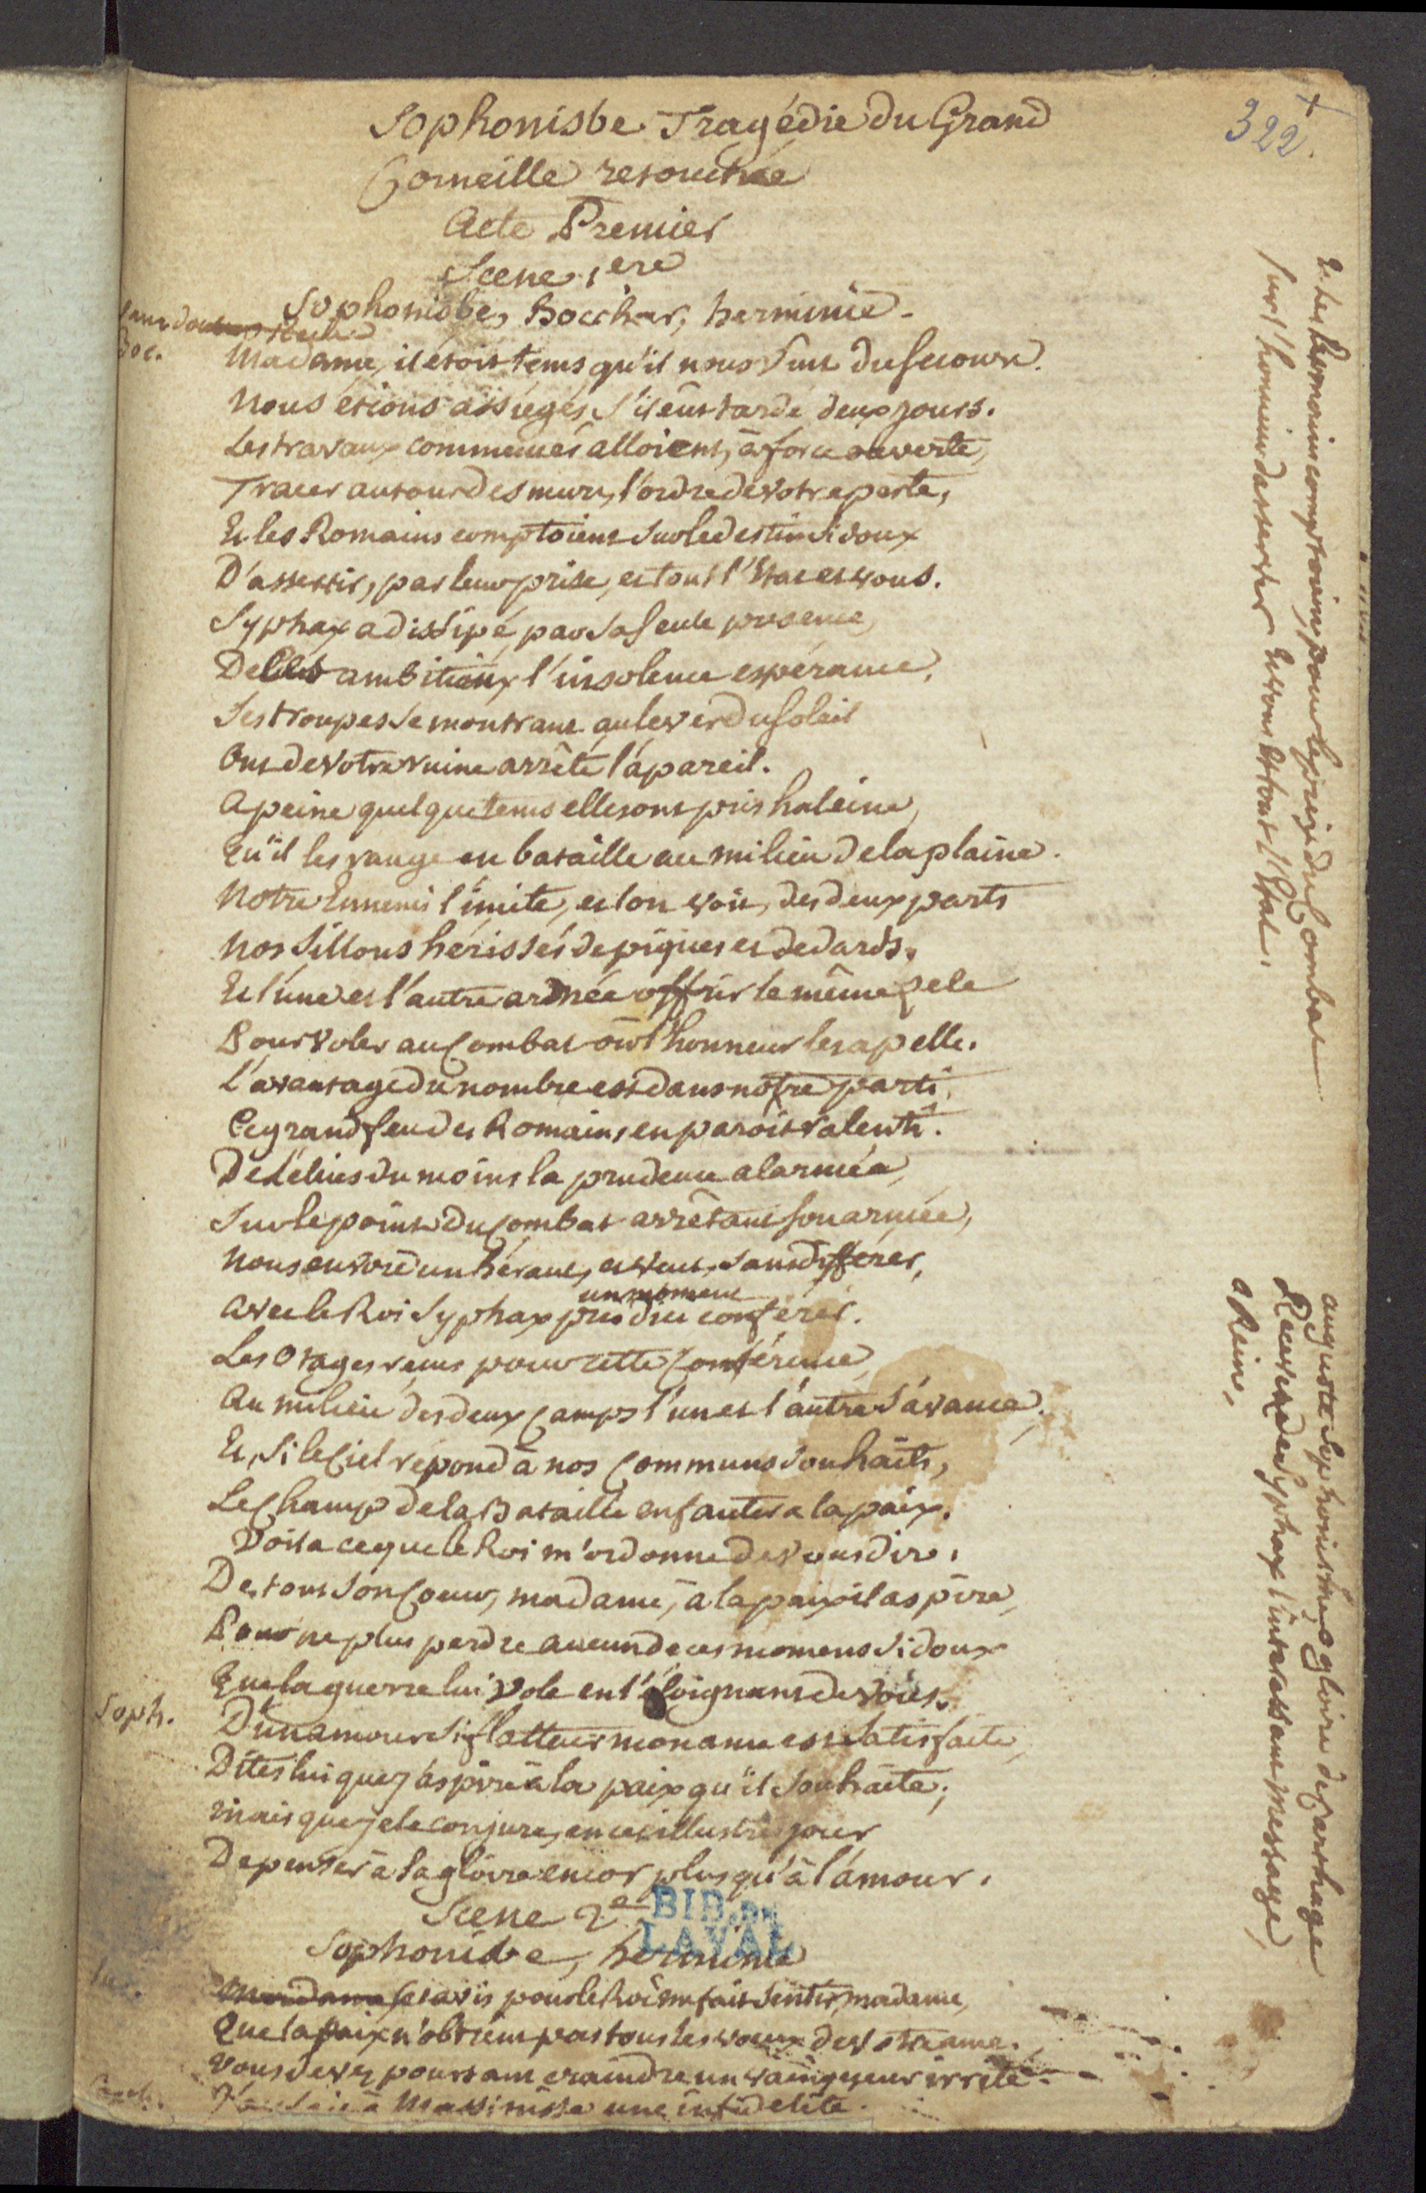 322
Sophonisbe Tragédie du Grand
Corneille retouchée
Acte Premier
Scene 1ere
Sophonisbe, Bocchar, herminie.
Boc.
Madame, il étoit tems qu'il nous vint du secours.
Nous etions assiegés, s'il eût tardé deux jours.
Les travaux commencés alloient, à force ouverte,
Tracer autour des murs, l'ordre de votre perte,
Et les Romains comptoient sur le destin si doux
D'asservir, par leur prise, et tout l'Etat et vous.
Syphax a dissipé, par sa seule presence,
De ces ambitieux l'insolence espérance.
Ses troupes se montrant au lever du soleil
Ont de votre ruine arrêté l'apareil.
A peine quelque tems elles ont pris haleine,
Qu'il les range en bataille au milieu de la plaine.
Notre Ennemi l'imite, et l'on voit, des deux parts
Nos sillons hérissés de piques et de dards.
Et l'une et l'autre armée offrir le même zele
Pour voler au Combat où l'honneur les apelle.
l'avantage du nombre est dans notre parti,
Ce grand feu des Romains en paroit ralenti.
De Lélius du moins la prudence alarmée,
Sur le point du Combat arrêtant son armée,
Nous envoie un héraut, et veut, sans differer,
un moment
Avec le Roi Syphax près d'ici conférer.
Les Otages reçus pour cette Conférence,
Au milieu des deux Camps l'un et l'autre s'avance.
Et, si le Ciel répond à nos Communs souhaits,
Le Champ de la Bataille enfantera la paix.
Voila ce que le Roi m'ordonne de vous dire.
De tout son Coeur, madame, à la paix il aspire,
Pour ne plus perdre aucun de ces momens si doux
Que la guerre lui vole en l'éloignant de vous.
Soph.
D'un amour si flatteur mon ame est satisfaite,
Dites lui que j'aspire à la paix qu'il souhaite;
mais que je le conjure, en cet illustre jour
De penser à sa gloire encor plus qu'à l'amour.
Scene 2e
BIB. DE
LAVAL
Sophonisbe, herminie
Cet avis pour le Roi m'fait sentir, madame,
Que la paix n'obtient pas tous les voeux de votre ame.
Vous devez pourtant craindre un vainqueur irrité.
à Massinisse une infidelité.
Et les Romains comptoient, pour le prix du Combat
sur l'honneur d'asservir et vous et tout l'Etat.
auguste Sophonisbe, gloire de Carthage
Recevez de Syphax l'interessant message,
O Reine,